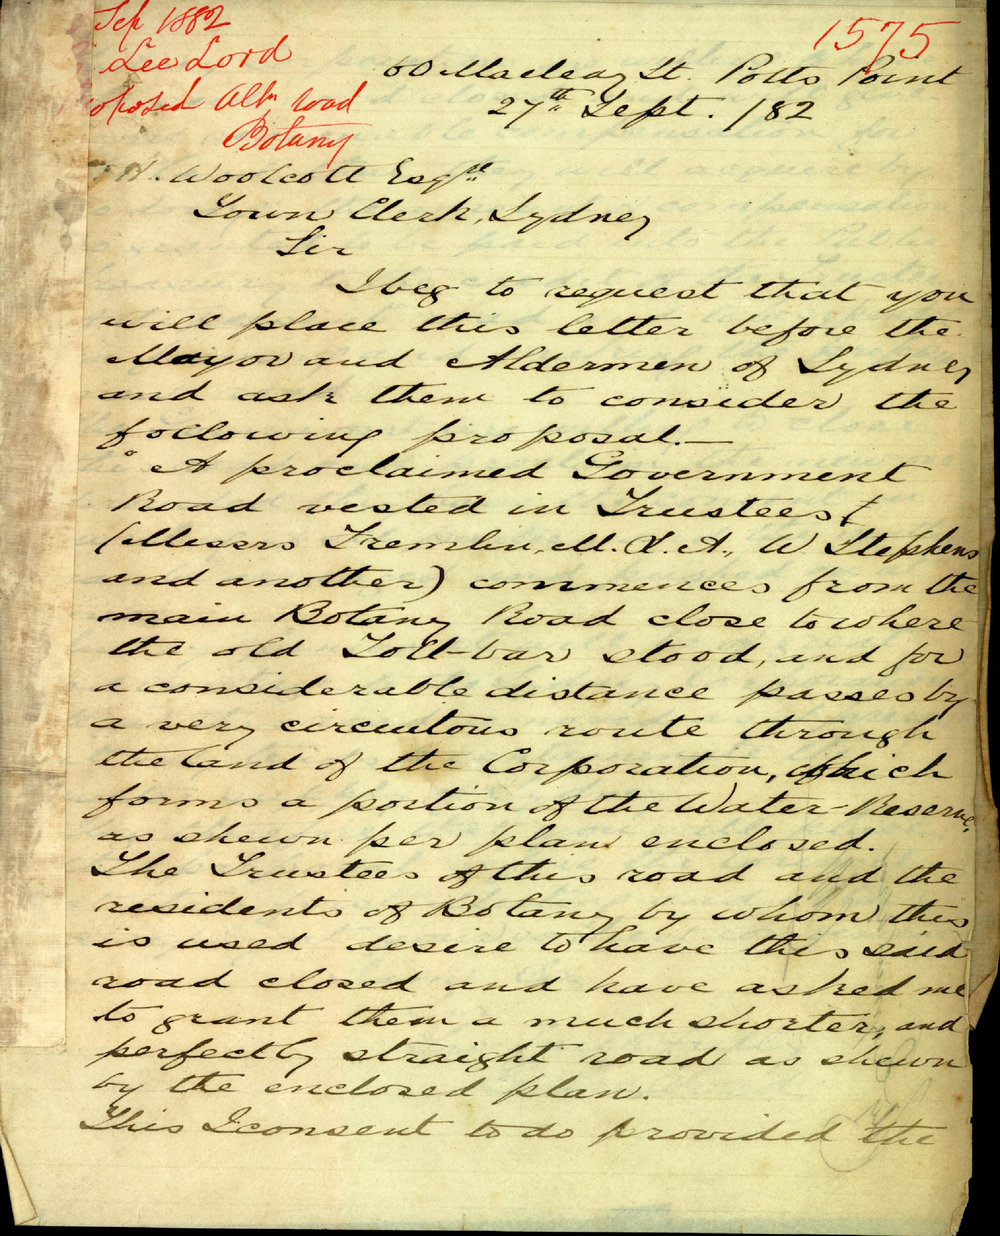 Sep 1882
Lee Lord
oposed altn road
Botany
1575
60 Macleay St. Potts Point
27th Sept. /82
H. Woolcott Esqre
Town Clerk, Sydney
Sir
I beg to request that you
will place this letter before the
Mayor and Aldermen of Sydney
and ask them to consider the
following proposal.—
"A proclaimed Government
Road vested in Trustees
(Messrs Tremlin, M.L.A., W Stephens
and another) commences from the
main Botany Road close to where
the old Toll-bar stood, and for
a considerable distance passes by
a very circuitous route through
the land of the Corporation, which
forms a portion of the Water-Reserve,
as shewn per plan enclosed.
The Trustees of this road and the
residents of Botany by whom this
is used desire to have this said
road closed and have asked me
to grant them a much shorter, and
perfectly straight road as shewn
by the enclosed plan.
This I consent to do provided the